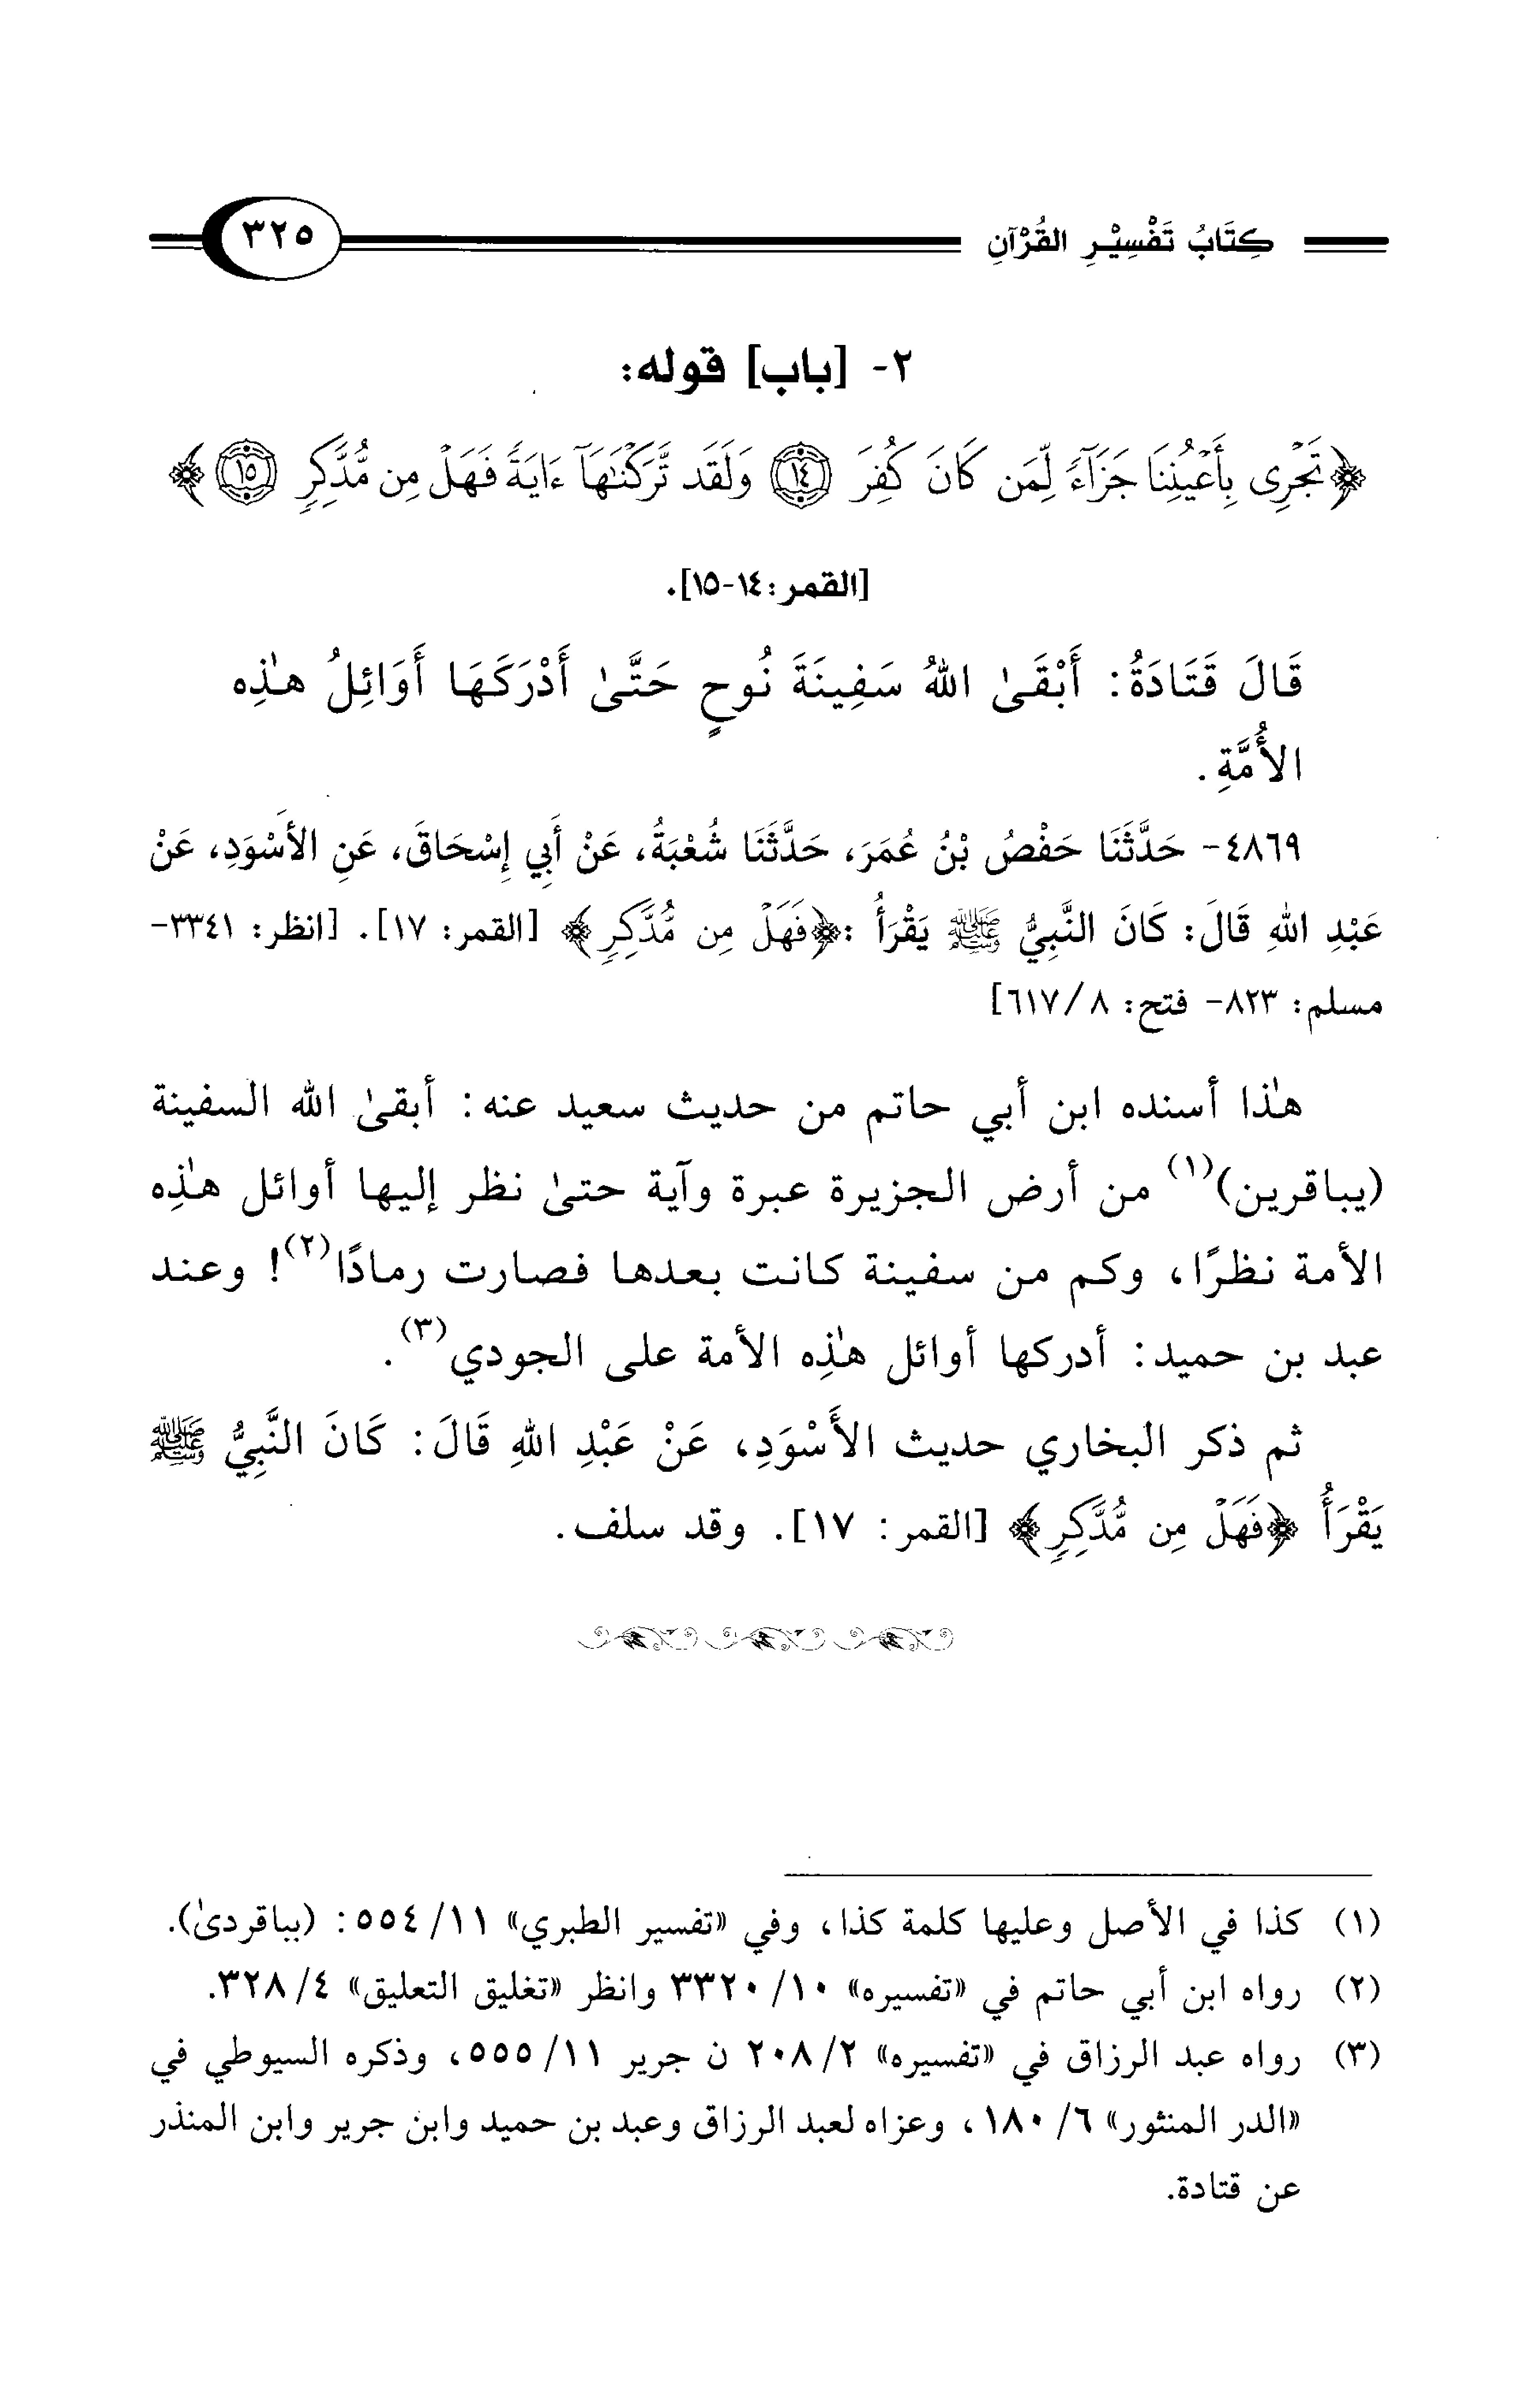 كِتَابُ تَفْسِيْرِ القُرْآنِ ٣٢٥
٢- [باب] قوله:
﴿تَجْرِى بِأَعْيُنِنَا جَزَآءً لِّمَن كَانَ كُفِرَ ١٤ وَلَقَد تَّرَكْنَٰهَآ ءَايَةً فَهَلْ مِن مُّدَّكِرٍ ١٥﴾
[القمر: ١٤-١٥].
قَالَ قَتَادَةُ: أَبْقَىٰ اللهُ سَفِينَةَ نُوحٍ حَتَّىٰ أَدْرَكَهَا أَوَائِلُ هٰذِه
الأُمَّةِ.
٤٨٦٩- حَدَّثَنَا حَفْصُ بْنُ عُمَرَ، حَدَّثَنَا شُعْبَةُ، عَنْ أَبِي إِسْحَاقَ، عَنِ الأَسْوَدِ، عَنْ
عَبْدِ اللهِ قَالَ: كَانَ النَّبِيُّ ﷺ يَقْرَأُ: ﴿فَهَلْ مِن مُّدَّكِرٍ﴾ [القمر: ١٧]. [انظر: ٣٣٤١-
مسلم: ٨٢٣- فتح: ٨/ ٦١٧]
هٰذا أسنده ابن أبي حاتم من حديث سعيد عنه: أبقىٰ الله السفينة
(يباقرين)(١) من أرض الجزيرة عبرة وآية حتىٰ نظر إليها أوائل هٰذِه
الأمة نظرًا، وكم من سفينة كانت بعدها فصارت رمادًا(٢)! وعند
عبد بن حميد: أدركها أوائل هٰذِه الأمة على الجودي(٣).
ثم ذكر البخاري حديث الأَسْوَدِ، عَنْ عَبْدِ اللهِ قَالَ: كَانَ النَّبِيُّ ﷺ
يَقْرَأُ ﴿فَهَلْ مِن مُّدَّكِرٍ﴾ [القمر: ١٧]. وقد سلف.
(١) كذا في الأصل وعليها كلمة كذا، وفي «تفسير الطبري» ١١/ ٥٥٤: (بباقردىٰ).
(٢) رواه ابن أبي حاتم في «تفسيره» ١٠/ ٣٣٢٠ وانظر «تغليق التعليق» ٤/ ٣٢٨.
(٣) رواه عبد الرزاق في «تفسيره» ٢/ ٢٠٨ ن جرير ١١/ ٥٥٥، وذكره السيوطي في
«الدر المنثور» ٦/ ١٨٠، وعزاه لعبد الرزاق وعبد بن حميد وابن جرير وابن المنذر
عن قتادة.